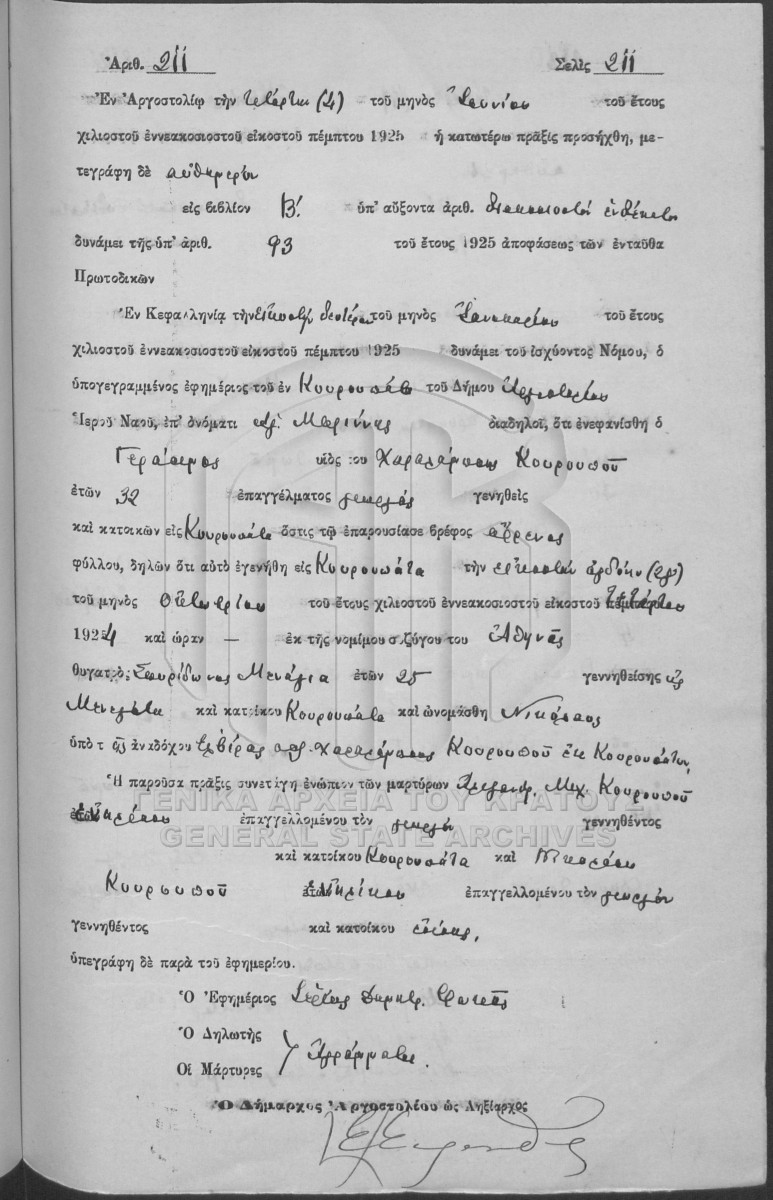 Ἀριθ. 211 Σελὶς 211
Ἐν Ἀργοστολίῳ τὴν τετάρτην (4) τοῦ μηνὸς Ἰουνίου τοῦ ἔτους
χιλιοστοῦ ἐννεακοσιοστοῦ εἰκοστοῦ πέμπτου 1925 ἡ κατωτέρω πρᾶξις προσήχθη, με-
τεγράφη δὲ αὐθημερὸν
εἰς βιβλίον Β΄. ὑπ' αὔξοντα ἀριθ. διακοσιοστὸν ἑνδέκατον
δυνάμει τῆς ὑπ' ἀριθ. 93 τοῦ ἔτους 1925 ἀποφάσεως τῶν ἐνταῦθα
Πρωτοδικῶν
Ἐν Κεφαλληνίᾳ τὴν εἰκοστὴν δευτέραν τοῦ μηνὸς Ἰανουαρίου τοῦ ἔτους
χιλιοστοῦ ἐννεακοσιοστοῦ εἰκοστοῦ πέμπτου 1925 δυνάμει τοῦ ἰσχύοντος Νόμου, ὁ
ὑπογεγραμμένος ἐφημέριος τοῦ ἐν Κουρουπάτα τοῦ Δήμου Ἀργοστολίου
Ἱεροῦ Ναοῦ, ἐπ' ὀνόματι ἁγ. Μαρίνης διαδηλοῖ, ὅτι ἐνεφανίσθη ὁ
Γεράσιμος υἱὸς του Χαραλάμπους Κουρουποῦ
ἐτῶν 32 ἐπαγγέλματος γεωργὸς γενηθεὶς
καὶ κατοικῶν εἰς Κουρουπάτα ὅστις τῷ ἐπαρουσίασε βρέφος ἄρρενος
φύλλου, δηλῶν ὅτι αὐτὸ ἐγενήθη εἰς Κουρουπάτα τὴν εἰκοστὴν ὀγδόην (28)
τοῦ μηνὸς Ὀκτωβρίου τοῦ ἔτους χιλιοστοῦ ἐννεακοσιοστοῦ εἰκοστοῦ τετάρτου
1924 καὶ ὥραν — ἐκ τῆς νομίμου συζύγου του Ἀθηνᾶς
θυγατρὸς Σπυρίδωνος Μενάγια ἐτῶν 25 γεννηθείσης εἰς
Μενεγάτα καὶ κατοίκου Κουρουπάτα καὶ ὠνομάσθη Νικόλαος
ὑπὸ τῆς ἀναδόχου Ἐλβίρας συζ. Χαραλάμπους Κουρουποῦ ἐκ Κουρουπάτων,
Ἡ παροῦσα πρᾶξις συνετάγη ἐνώπιον τῶν μαρτύρων Ἀλεξανδ. Μιχ. Κουρουποῦ
ἐνηλίκου ἐπαγγελλομένου τὸν γεωργὸν γεννηθέντος
καὶ κατοίκου Κουρουπάτα καὶ Νικολάου
Κουρουποῦ ἐνηλίκου ἐπαγγελλομένου τὸν γεωργὸν
γεννηθέντος καὶ κατοίκου ἐπίσης,
ὑπεγράφη δὲ παρὰ τοῦ ἐφημερίου.
Ὁ Ἐφημέριος Δημητρ.
Ὁ Δηλωτὴς
Οἱ Μάρτυρες Ἀγράμματοι.
Ὁ Δήμαρχος Ἀργοστολίου ὡς Ληξίαρχος
ΓΕΝΙΚΑ ΑΡΧΕΙΑ ΤΟΥ ΚΡΑΤΟΥΣ
GENERAL STATE ARCHIVES